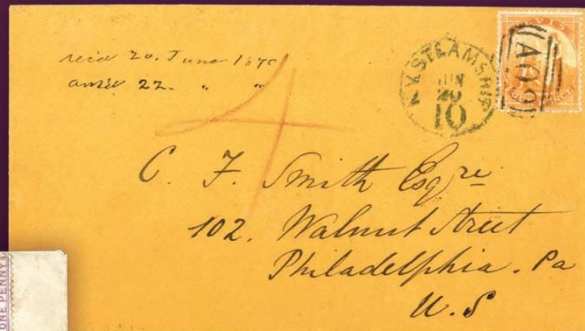 recd 20. June 1870
ansd 22. " "
4
N.Y. STEAMSHIP
JUN
20
10
A09
C. F. Smith Esqre
102. Walnut Street
Philadelphia. Pa
U. S
ONE PENNY